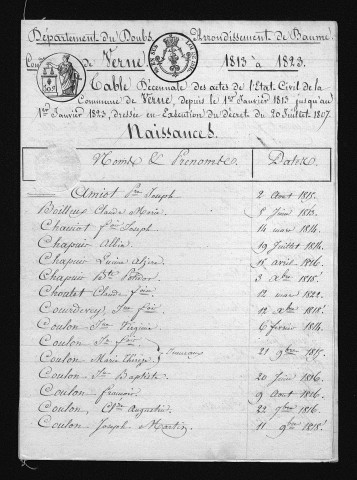 Département du Doubs Arrondissement de Baume
de Verne 1813 à 1823.
Table Décennale des actes de l'Etat-Civil de la
Commune de Verne, depuis le 1er Janvier 1813 jusqu'au
1er Janvier 1823, dressée en Exécution du Décret du 20 Juillet 1807.
Naissances.
Noms & Prénoms. Dates.
Amiot Joseph 2 Aout 1815.
Boilleux Claude Marie 8 Juin 1813.
Joseph 14 mars 1814.
Chapuis 19 Juillet 1814.
Chapuis 15 avril 1816.
Chapuis 3 Xbre 1818.
Claude 12 mars 1822.
12 Xbre 1818.
Coulon Virginie 6 fevrier 1814.
Coulon Jn
Jumeaux 21 9bre 1817.
Coulon Marie Thérèse
Coulon Jn Baptiste 20 Juin 1816.
Coulon François 9 Aout 1816.
Coulon, Augustin. 22 7bre 1816.
Coulon Joseph Martin 11 9bre 1818.